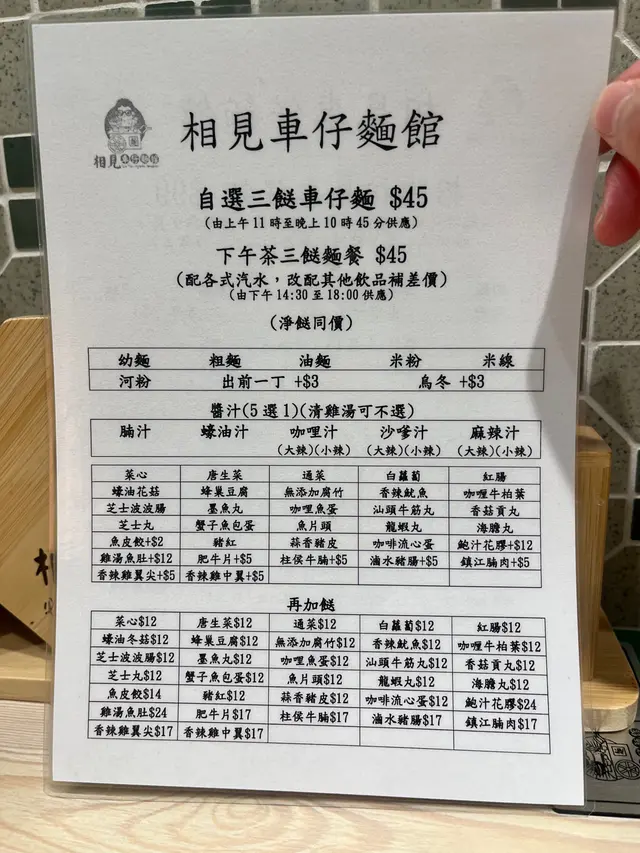 相見車仔麵館
相見車仔麵館
自選三餸車仔麵 $45
(由上午11時至晚上10時45分供應)
下午茶三餸麵餐 $45
(配各式汽水，改配其他飲品補差價)
(由下午14:30至18:00供應)
(淨餸同價)
幼麵 粗麵 油麵 米粉 米線
河粉 出前一丁 +$3 烏冬 +$3
醬汁(5選1)(清雞湯可不選)
腩汁 蠔油汁 咖哩汁 沙嗲汁 麻辣汁
(大辣)(小辣) (大辣)(小辣) (大辣)(小辣)
菜心 唐生菜 通菜 白蘿蔔 紅腸
蠔油花菇 蜂巢豆腐 無添加腐竹 香辣魷魚 咖喱牛柏葉
芝士波波腸 墨魚丸 咖哩魚蛋 汕頭牛筋丸 香菇貢丸
芝士丸 蟹子魚包蛋 魚片頭 龍蝦丸 海膽丸
魚皮餃+$2 豬紅 蒜香豬皮 咖啡流心蛋 鮑汁花膠+$12
雞湯魚肚+$12 肥牛片+$5 柱侯牛腩+$5 滷水豬腸+$5 鎮江腩肉+$5
香辣雞翼尖+$5 香辣雞中翼+$5
再加餸
菜心$12 唐生菜$12 通菜$12 白蘿蔔$12 紅腸$12
蠔油冬菇$12 蜂巢豆腐$12 無添加腐竹$12 香辣魷魚$12 咖喱牛柏葉$12
芝士波波腸$12 墨魚丸$12 咖哩魚蛋$12 汕頭牛筋丸$12 香菇貢丸$12
芝士丸$12 蟹子魚包蛋$12 魚片頭$12 龍蝦丸$12 海膽丸$12
魚皮餃$14 豬紅$12 蒜香豬皮$12 咖啡流心蛋$12 鮑汁花膠$24
雞湯魚肚$24 肥牛片$17 柱侯牛腩$17 滷水豬腸$17 鎮江腩肉$17
香辣雞翼尖$17 香辣雞中翼$17